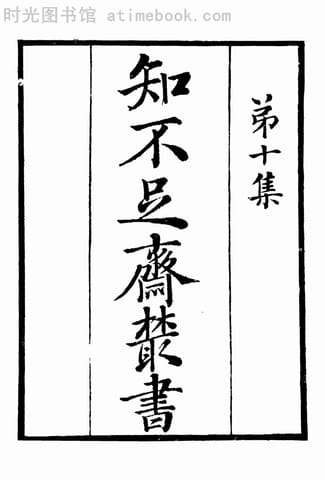 时光图书馆 atimebook.com
第十集
知不足齋叢書